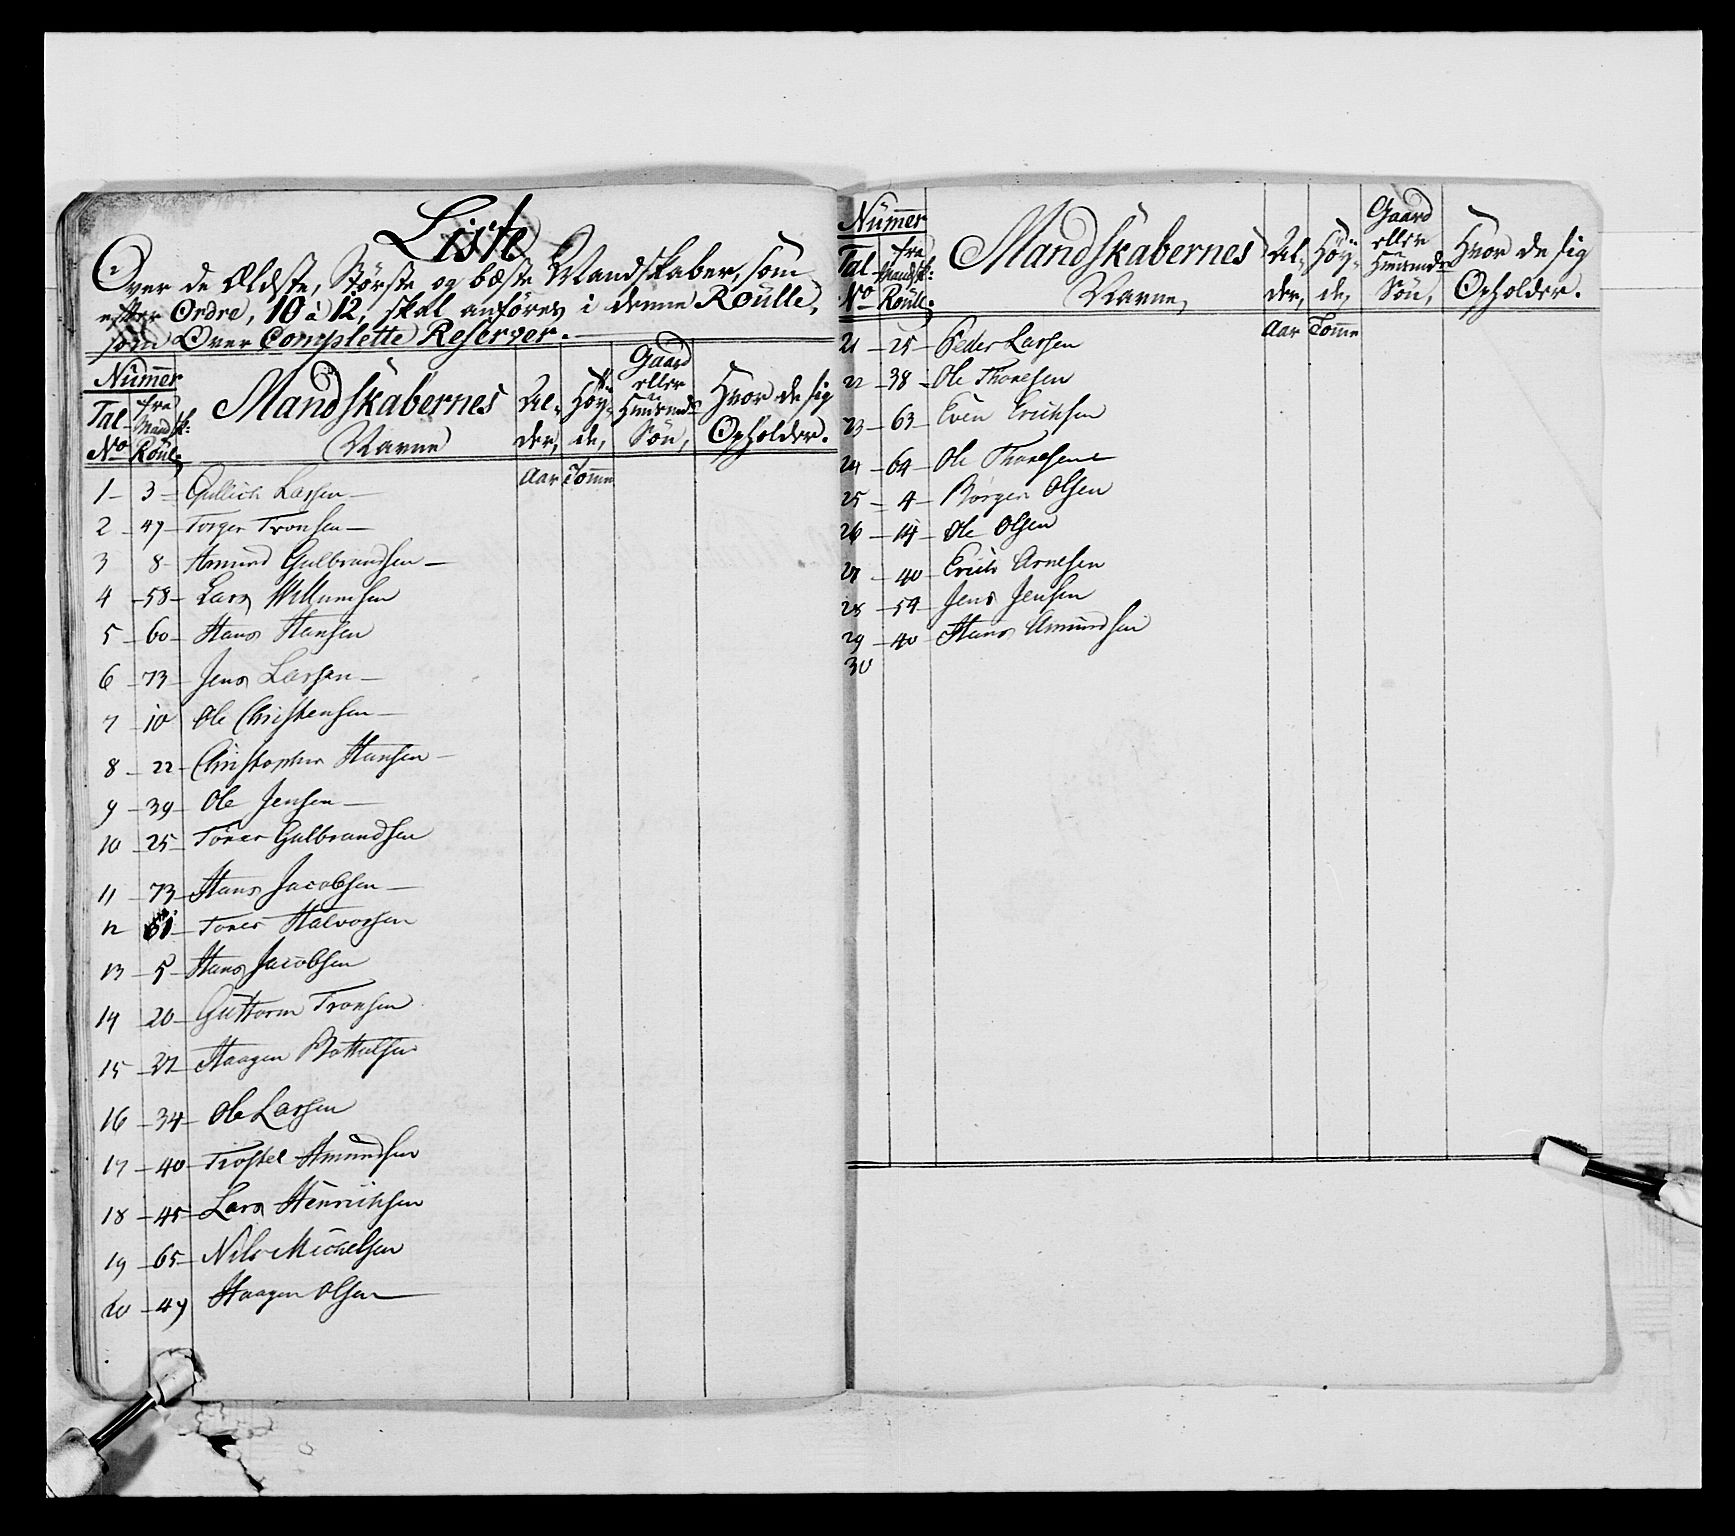 Liste
Over de Ældste, Störste og bæste Mandskaber, som
efter Ordre, 10 à 12, skal anföres i denne Roulle,
som Over Complette Reserver.
Numer
Tal No | fra Mandsk: Roul, | Mandskabernes Navne | Al-der, | Höy-de, | Gaard eller Huusmds Sön, | Hvor de sig Opholder.
Aar Tomme
1 - 3 - Gullich Larsen -
2 - 47 - Torger Tronsen -
3 8 - Amund Gulbrandsen -
4 - 58 - Lars Willumsen
5 - 60 - Hans Hansen
6 - 73 - Jens Larsen -
7 - 10 Ole Christensen -
8 - 22 - Christopher Hansen -
9 - 39 - Ole Jensen -
10 - 25 - Torer Gulbrandsen
11 - 73 - Hans Jacobsen -
12 61 - Torer Halvorsen
13 - 5 - Hans Jacobsen
14 - 20 - Guttorm Tronsen
15 - 27 - Haagen
16 - 34 - Ole Larsen
17 - 40 - Trostel Amundsen
18 - 45 - Lars Henrichsen
19 - 65 - Nils Michelsen
20 - 49 Haagen Olsen
Numer
Tal No | fra Mandsk: Roull. | Mandskabernes Navne, | Al-der, | Höy-de, | Gaard eller Huusmds Sön, | Hvor de sig Opholder.
Aar Tomme
21 - 25 - Peder Larsen
22 - 38 - Ole Thoresen
23 - 63 - Even Erichsen
24 - 64 - Ole Thoresen
25 - 4 - Börger Olsen
26 - 14 - Ole Olsen
27 - 40 - Erich Arnesen
28 - 54 - Jens Jensen
29 - 40 - Hans Amundsen
30